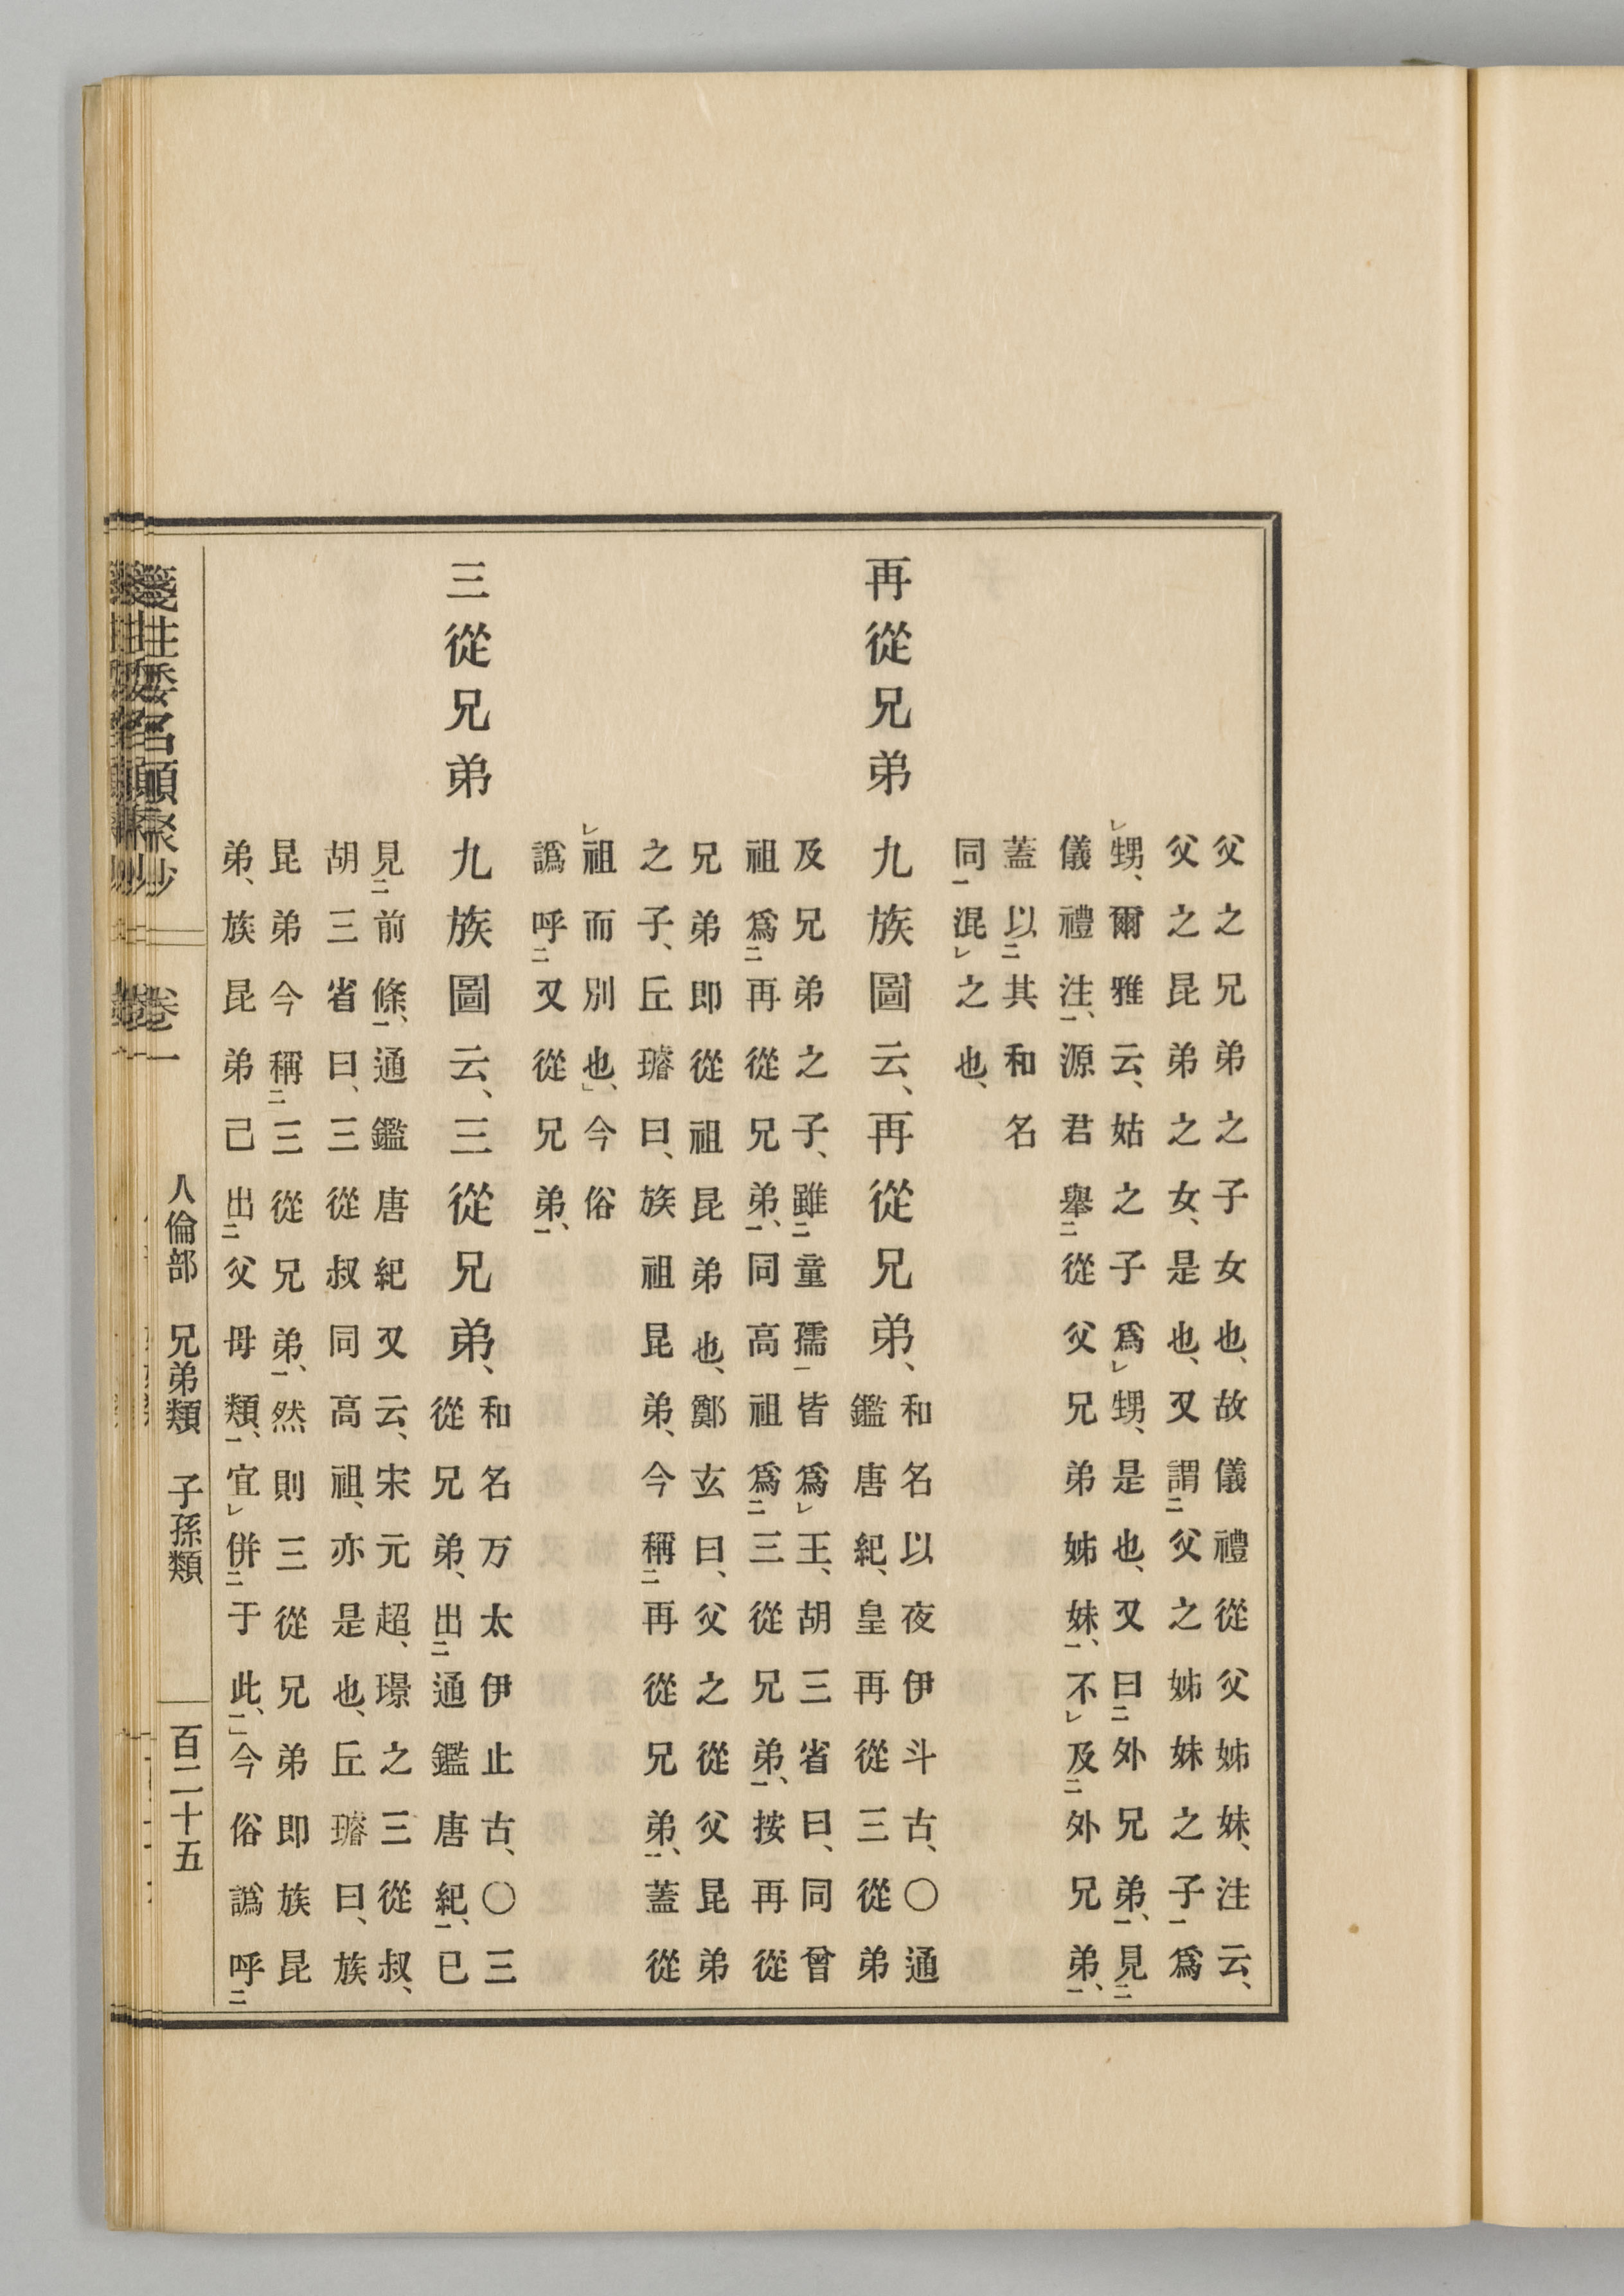 父之兄弟之子女也、故儀禮從父姊妹、注云、
父之昆弟之女、是也、又謂㆓父之姊妹之子㆒爲
㆑甥、爾雅云、姑之子爲㆑甥、是也、又曰㆓外兄弟㆒、見㆓
儀禮注㆒、源君舉㆓從父兄弟姊妹㆒、不㆑及㆓外兄弟㆒、
蓋以㆓其和名
同㆒混㆑之也、
再從兄弟 九族圖云、再從兄弟、
和名以夜伊斗古、〇通
鑑唐紀、皇再從三從弟
及兄弟之子、雖㆓童孺㆒皆爲㆑王、胡三省曰、同曾
祖爲㆓再從兄弟㆒、同高祖爲㆓三從兄弟㆒、按再從
兄弟即從祖昆弟也、鄭玄曰、父之從父昆弟
之子、丘璿曰、族祖昆弟、今稱㆓再從兄弟㆒、蓋從
㆑祖而別也」、今俗
譌呼㆓又從兄弟㆒、
三從兄弟 九族圖云、三從兄弟、
和名万太伊止古、〇三
從兄弟、出㆓通鑑唐紀㆒、已
見㆓前條㆒、通鑑唐紀又云、宋元超、璟之三從叔、
胡三省曰、三從叔同高祖、亦是也、丘璿曰、族
昆弟今稱㆓三從兄弟㆒、然則三從兄弟即族昆
弟、族昆弟己出㆓父母類㆒、宜㆑併㆓于此㆒、」今俗譌呼㆓
箋注倭名類聚抄 卷一 人倫部 兄弟類 子孫類 百二十五